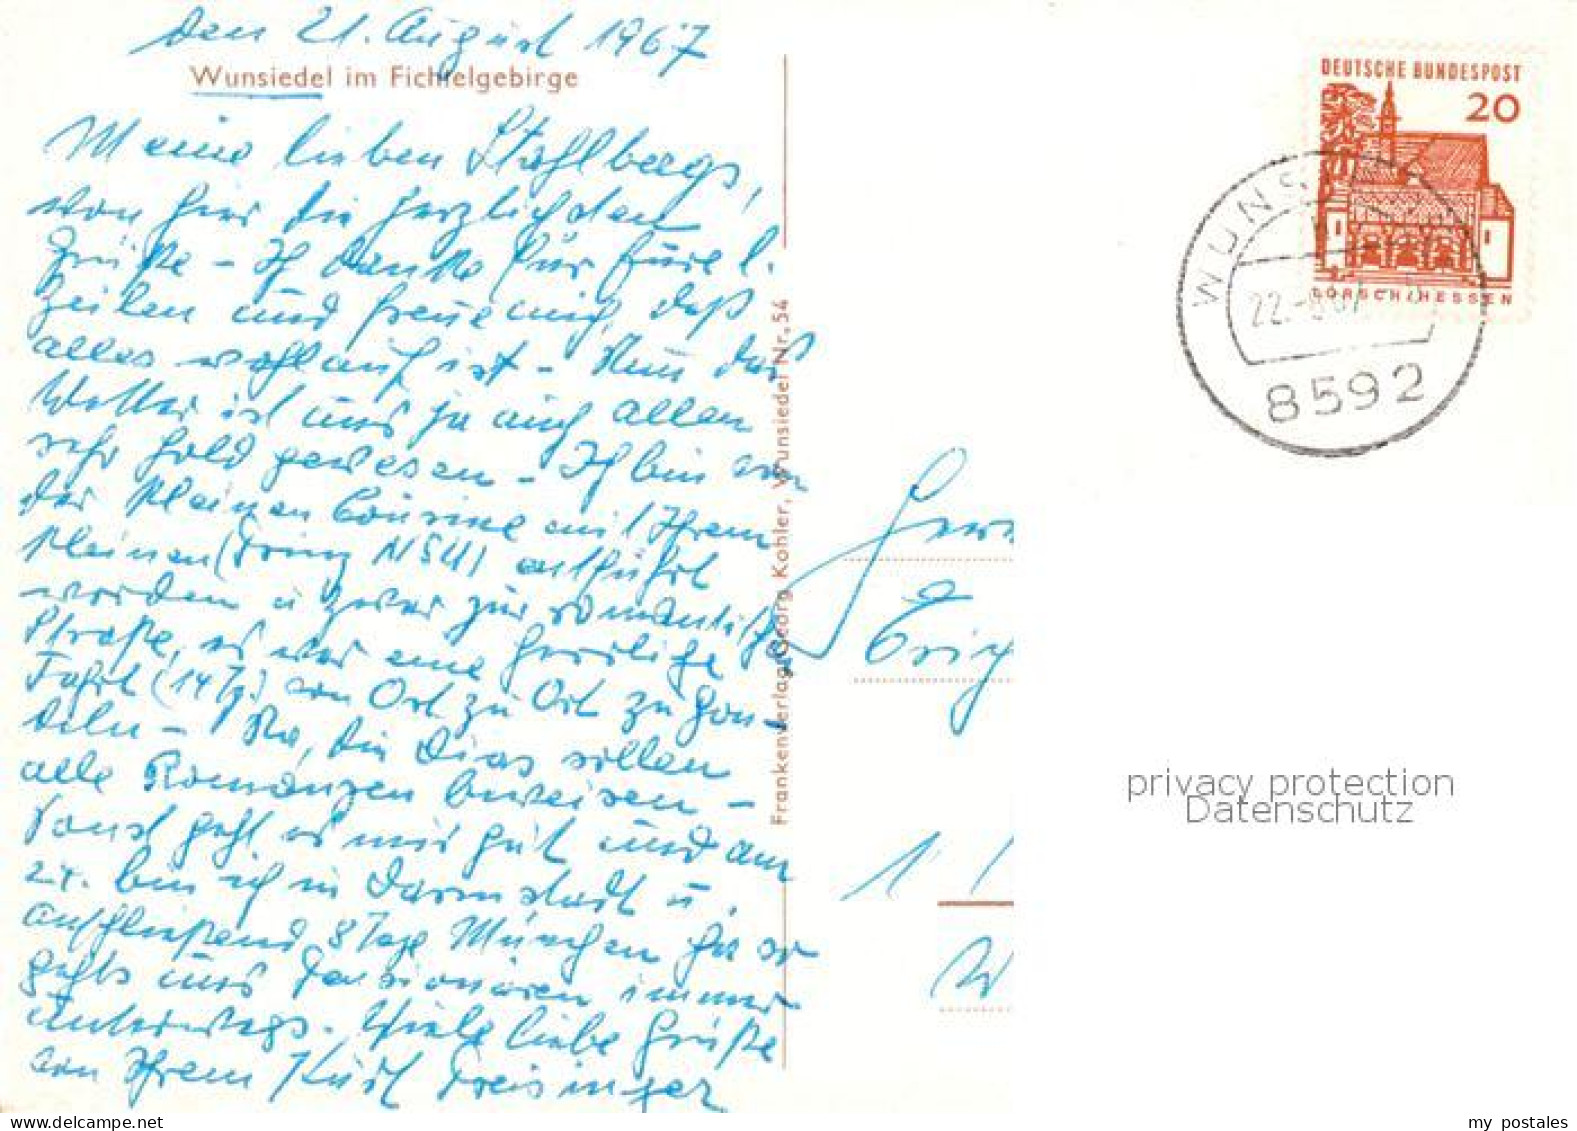 den 21. August 1967
Wunsiedel im Fichtelgebirge
Meine lieben Stahlbergs,
von hier die herzlichsten
Grüße – Ich danke für Eure l.
Zeilen und freue mich, daß
alles wohlauf ist – Nun das
Wetter ist uns ja auch allen
sehr hold gewesen – Ich bin von
der kleinen Cousine mit Ihrem
kleinen (Prinz NSU) entführt
worden u zwar zur romantischen
Straße, es war eine herrliche
Fahrt (14 Tg.) von Ort zu Ort zu gon-
deln – Na, die Dias sollen
alle Romanzen beweisen –
Sonst geht es mir gut und am
24. bin ich in Darmstadt u.
anschließend 8 Tage München ja so
gehts uns Pensionären immer
unterwegs. Viele liebe Grüße
von Ihrem Kurt Preisinger
Frankenverlag Georg Kohler, Wunsiedel Nr. 54
DEUTSCHE BUNDESPOST
20
LORSCH/HESSEN
WUNS
22.-8.67
8592
Herr
Erich
1 1
W
privacy protection
Datenschutz
www.delcampe.net
my postales